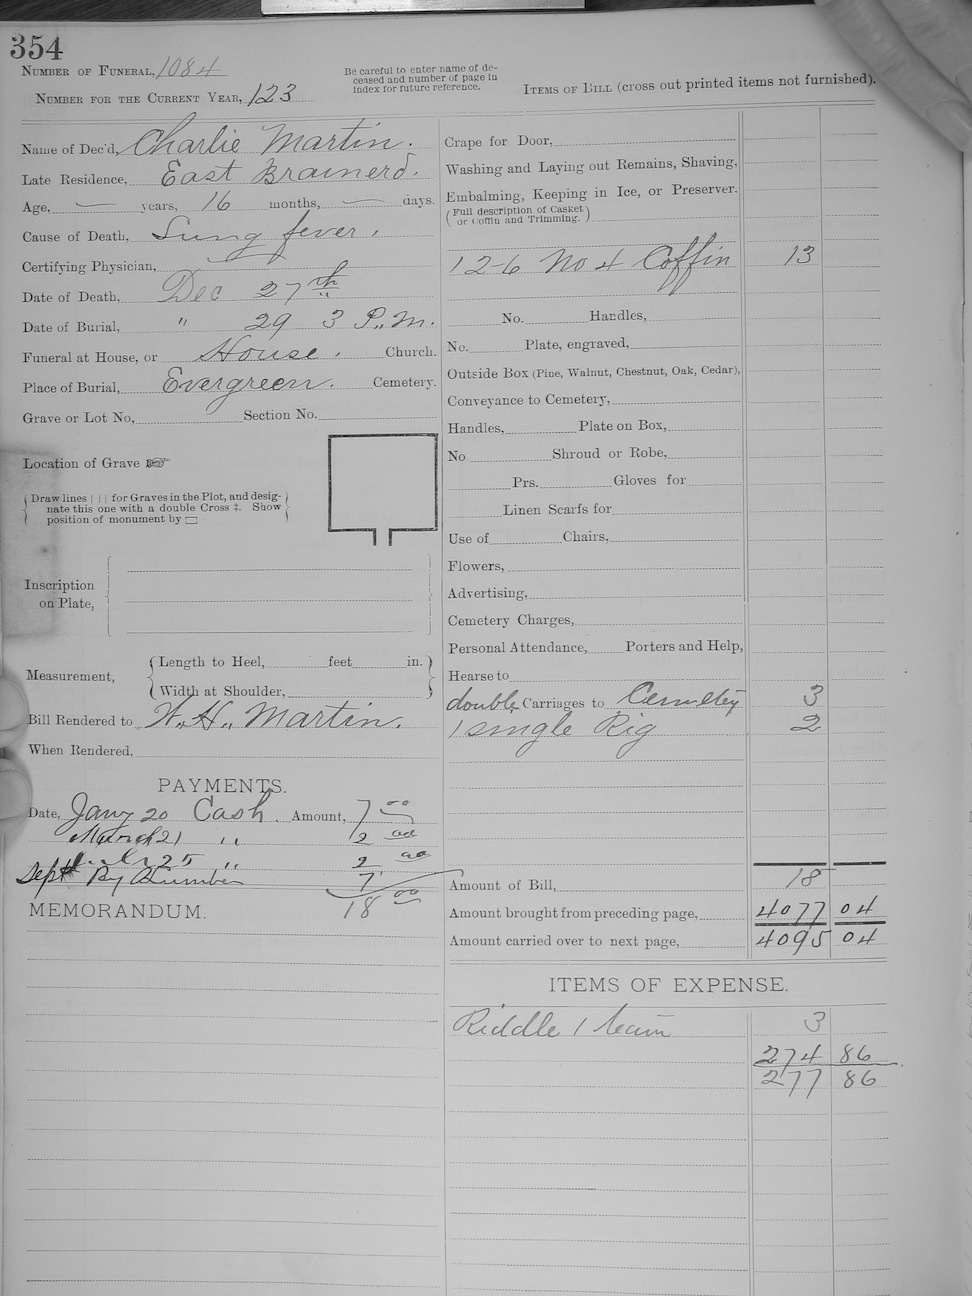 354
Number of Funeral, 1084
Number for the Current Year, 123
Be careful to enter name of de-
ceased and number of page in
index for future reference.
Items of Bill (cross out printed items not furnished).
Name of Dec'd, Charlie Martin.
Late Residence, East Brainerd.
Age, — years, 16 months, — days.
Cause of Death, Lung fever.
Certifying Physician,
Date of Death, Dec 27th
Date of Burial, " 29 3 P.M.
Funeral at House, or House. Church.
Place of Burial, Evergreen. Cemetery.
Grave or Lot No, Section No.
Location of Grave ☞
Draw lines | | | for Graves in the Plot, and desig-
nate this one with a double Cross ‡. Show
position of monument by ▭
Inscription
on Plate,
Measurement,
Length to Heel, feet in.
Width at Shoulder,
Bill Rendered to W.H. Martin.
When Rendered,
PAYMENTS.
Date, Jany 20 Cash. Amount, 7 00
March 21 " 2 00
25 " 2 00
Sept By Lumber 7
18 00
MEMORANDUM.
Crape for Door,
Washing and Laying out Remains, Shaving,
Embalming, Keeping in Ice, or Preserver.
(Full description of Casket
or Coffin and Trimming.)
1 2-6 No 4 Coffin 13
No. Handles,
No. Plate, engraved,
Outside Box (Pine, Walnut, Chestnut, Oak, Cedar),
Conveyance to Cemetery,
Handles, Plate on Box,
No Shroud or Robe,
Prs. Gloves for
Linen Scarfs for
Use of Chairs,
Flowers,
Advertising,
Cemetery Charges,
Personal Attendance, Porters and Help,
Hearse to
double Carriages to Cemetey 3
1 single Rig 2
Amount of Bill, 18
Amount brought from preceding page, 4077 04
Amount carried over to next page, 4095 04
ITEMS OF EXPENSE.
Riddle 1 team 3
274 86
277 86